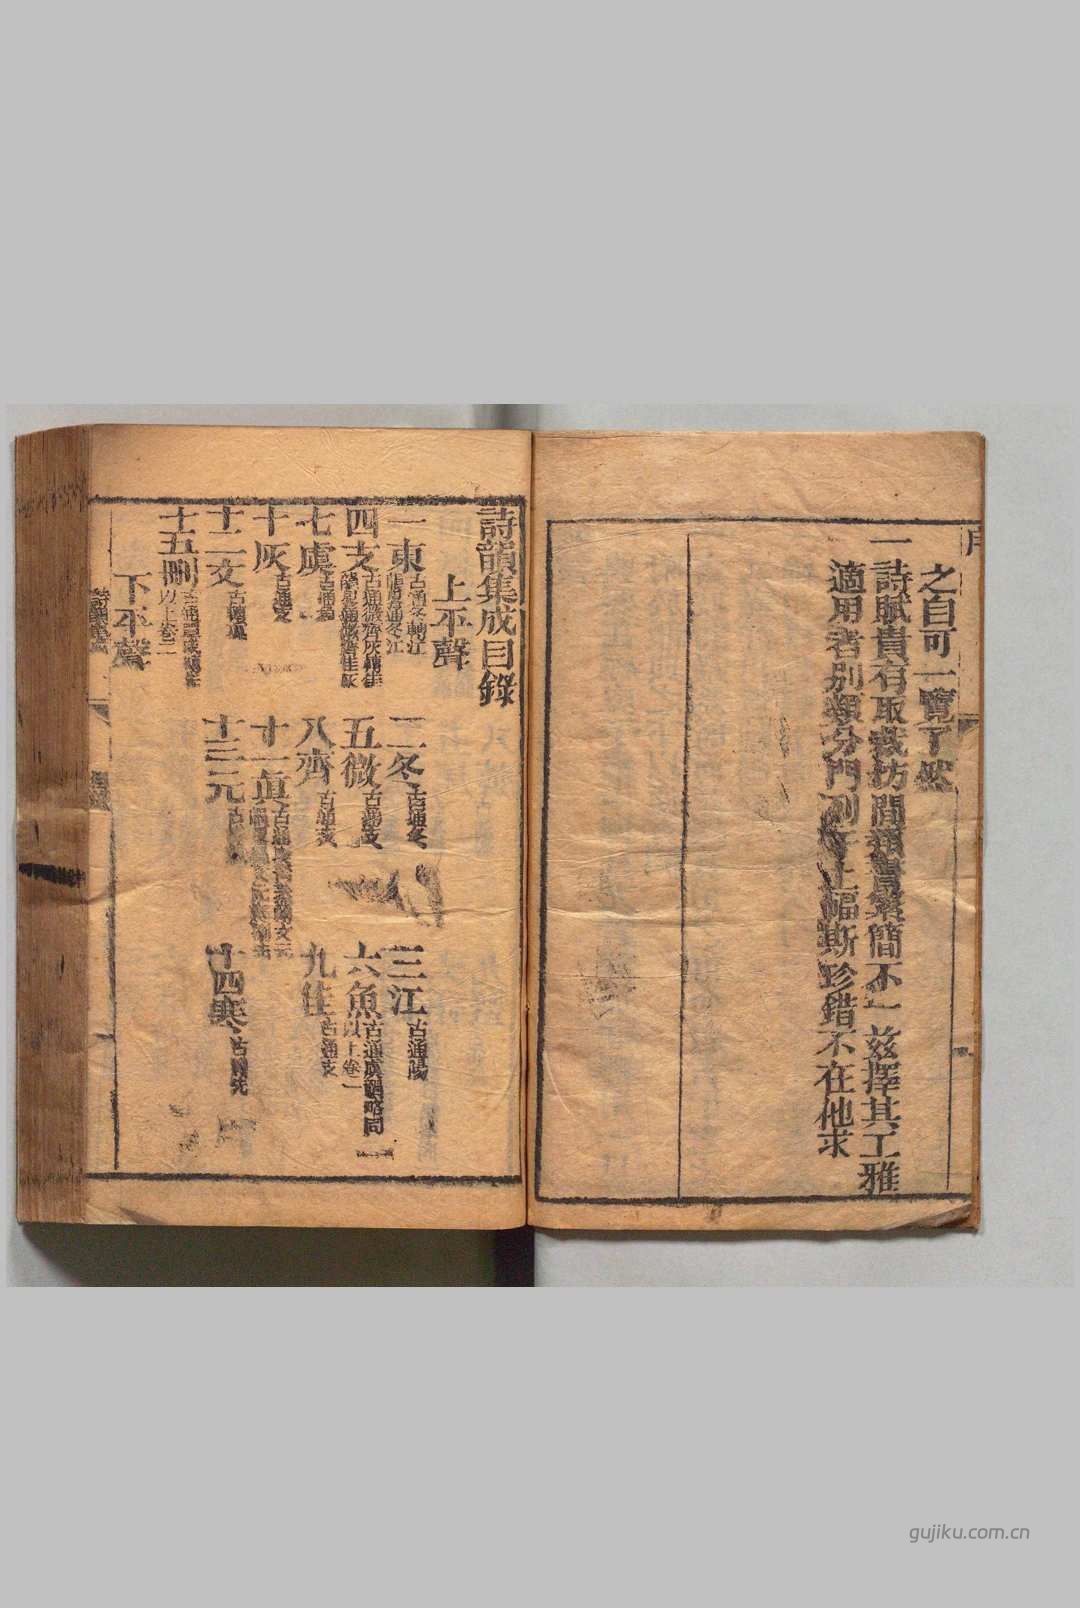 之自可一覽了然
一詩賦貴有取裁坊間類書繁簡不一茲擇其工雅
適用者別類分門列于上幅斯珍錯不在他求
詩韻集成目錄
上平聲
一東 古通冬轉江 二冬 古通冬 三江 古通陽
四支 古通微齊灰轉佳 五微 古通支 六魚 古通虞 以上卷一
七虞 八齊 古通支 九佳 古通支
十灰 古通支 十一真
十二文 古轉真 十三元 十四寒 古轉先
十五刪 以上卷二
下平聲
gujiku.com.cn